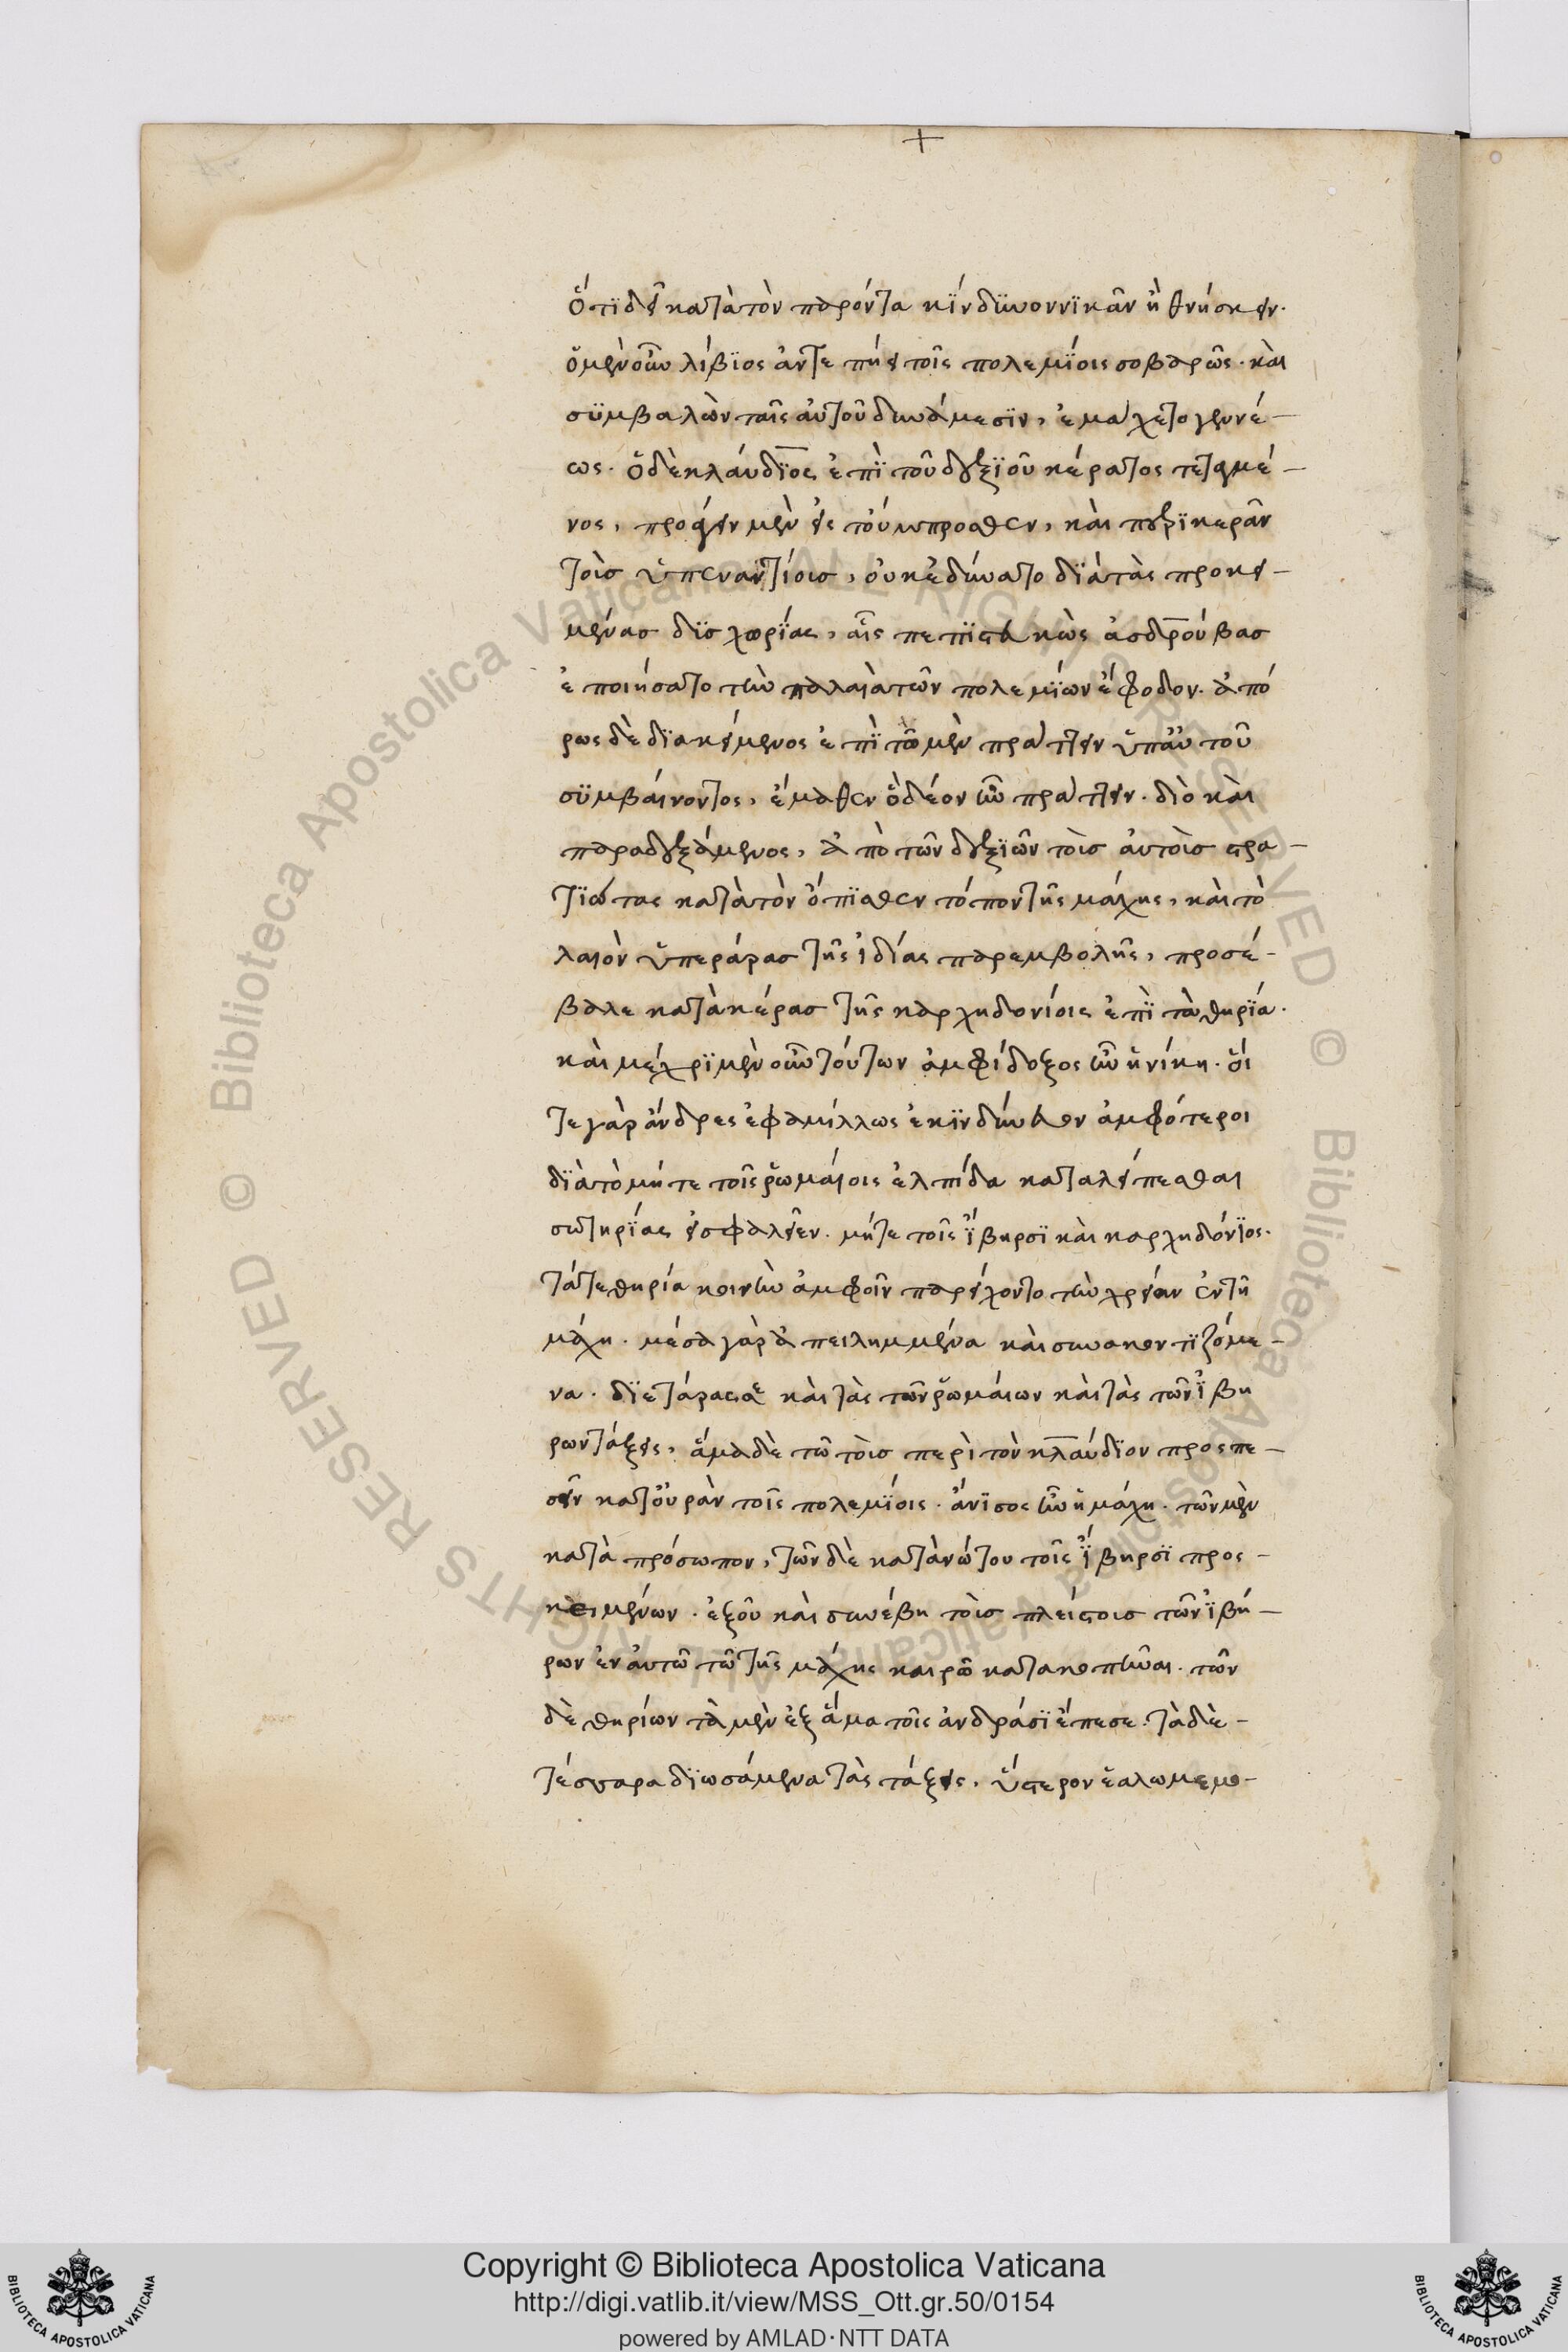 +
ὅτϊ δεῖ κατὰ τὸν παρόντα κΐνδϋνον νϊκᾶν ἢ θνήσκειν.
ὁ μὲν οὖν λίβϊος ἀντεπήει τοῖς πολεμΐοις σοβαρῶς. καὶ
σϋμβαλὼν ταῖς αὑτοῦ δυνάμεσϊν, ἐμάχετο γεννέ-
ως. ὁ δὲ κλάυδϊος ἐπῒ τοῦ δεξϊοῦ κέρατος τεταγμέ-
νος, προάγειν μὲν εἰς τοὔμπροσθεν, καὶ περϊκερᾶν
τοὶσ ὑπεναντίοισ, οὐκ ἐδύνατο δϊὰ τὰς προκει-
μένασ δϊσχωρΐας, αἷς πεπϊστευκὼς ἀσδρούβασ
ἐποιήσατο τὴν παλαιὰ τῶν πολεμΐων ἔφοδον. ἀπό
ρως δὲ δϊακείμενος ἐπῒ τῶ μὲν πράττειν ὑπ' ἀυτοῦ
σϋμβάινοντος, ἔμαθεν ὃ δέον ἦν πράττειν. διὸ καὶ
παραδεξάμενος, ἀπὸ τῶν δεξϊῶν τοὶσ ἀυτοὶσ στρα-
τϊώτας κατὰ τὸν ὄπϊσθεν τόπον τῆς μάχης, καὶ τὸ
λαιὸν ὑπεράρασ τῆς ἰδίας παρεμβολῆς, προσέ-
βαλε κατὰ κέρασ τῆς καρχηδονίοις ἐπῒ τὰ θηρΐα.
καὶ μέχρϊ μὲν οὖν τούτων ἀμφίδοξος ἦν ἡ νίκη. ὅι
τε γὰρ ἄνδρες ἐφαμίλλως ἐκϊνδύνευον ἀμφότεροι
δϊὰ τὸ μήτε τοῖς ῥωμάιοις ἐλπίδα καταλείπεσθαι
σωτηρΐας εἰσφαλεῖεν. μήτε τοῖς ἴβηρσϊ καὶ καρχηδόνϊος.
τάτε θηρία κοινὴν ἀμφοῖν παρείχοντο τὴν χρείαν ἐν τῆ
μάχη. μέσα γὰρ ἀπειλημμένα καὶ συνακοντϊζόμε-
να. δϊετάραστε καὶ τὰς τῶν ῥωμάιων καὶ τὰς τῶν ΐβη
ρων τάξεις, ἅμα δὲ τῶ τοὶσ περὶ τὸν κλάυδϊον προσπε-
σεῖν κατ' οὐρὰν τοῖς πολεμΐοις. ἄνϊσος ἦν ἡ μάχη. τῶν μὲν
κατὰ πρόσωπον, τῶν δὲ κατὰ νώτου τοῖς ΐβηρσϊ προσ-
κειμένων. ἐξοῦ καὶ συνέβη τοὶσ πλείστοισ τῶν ϊβή-
ρων ἐν ἀυτῶ τῶ τῆς μάχης καιρῶ κατακοπῆναι. τῶν
δὲ θηρίων τὰ μὲν ἓξ ἅμα τοῖς ἀνδράσϊ ἔπεσε. τὰ δὲ-
τέσσαρα δϊωσάμενα τὰς τάξεις, ὕστερον ἑάλω μεμο-
Copyright © Biblioteca Apostolica Vaticana
http://digi.vatlib.it/view/MSS_Ott.gr.50/0154
powered by AMLAD·NTT DATA